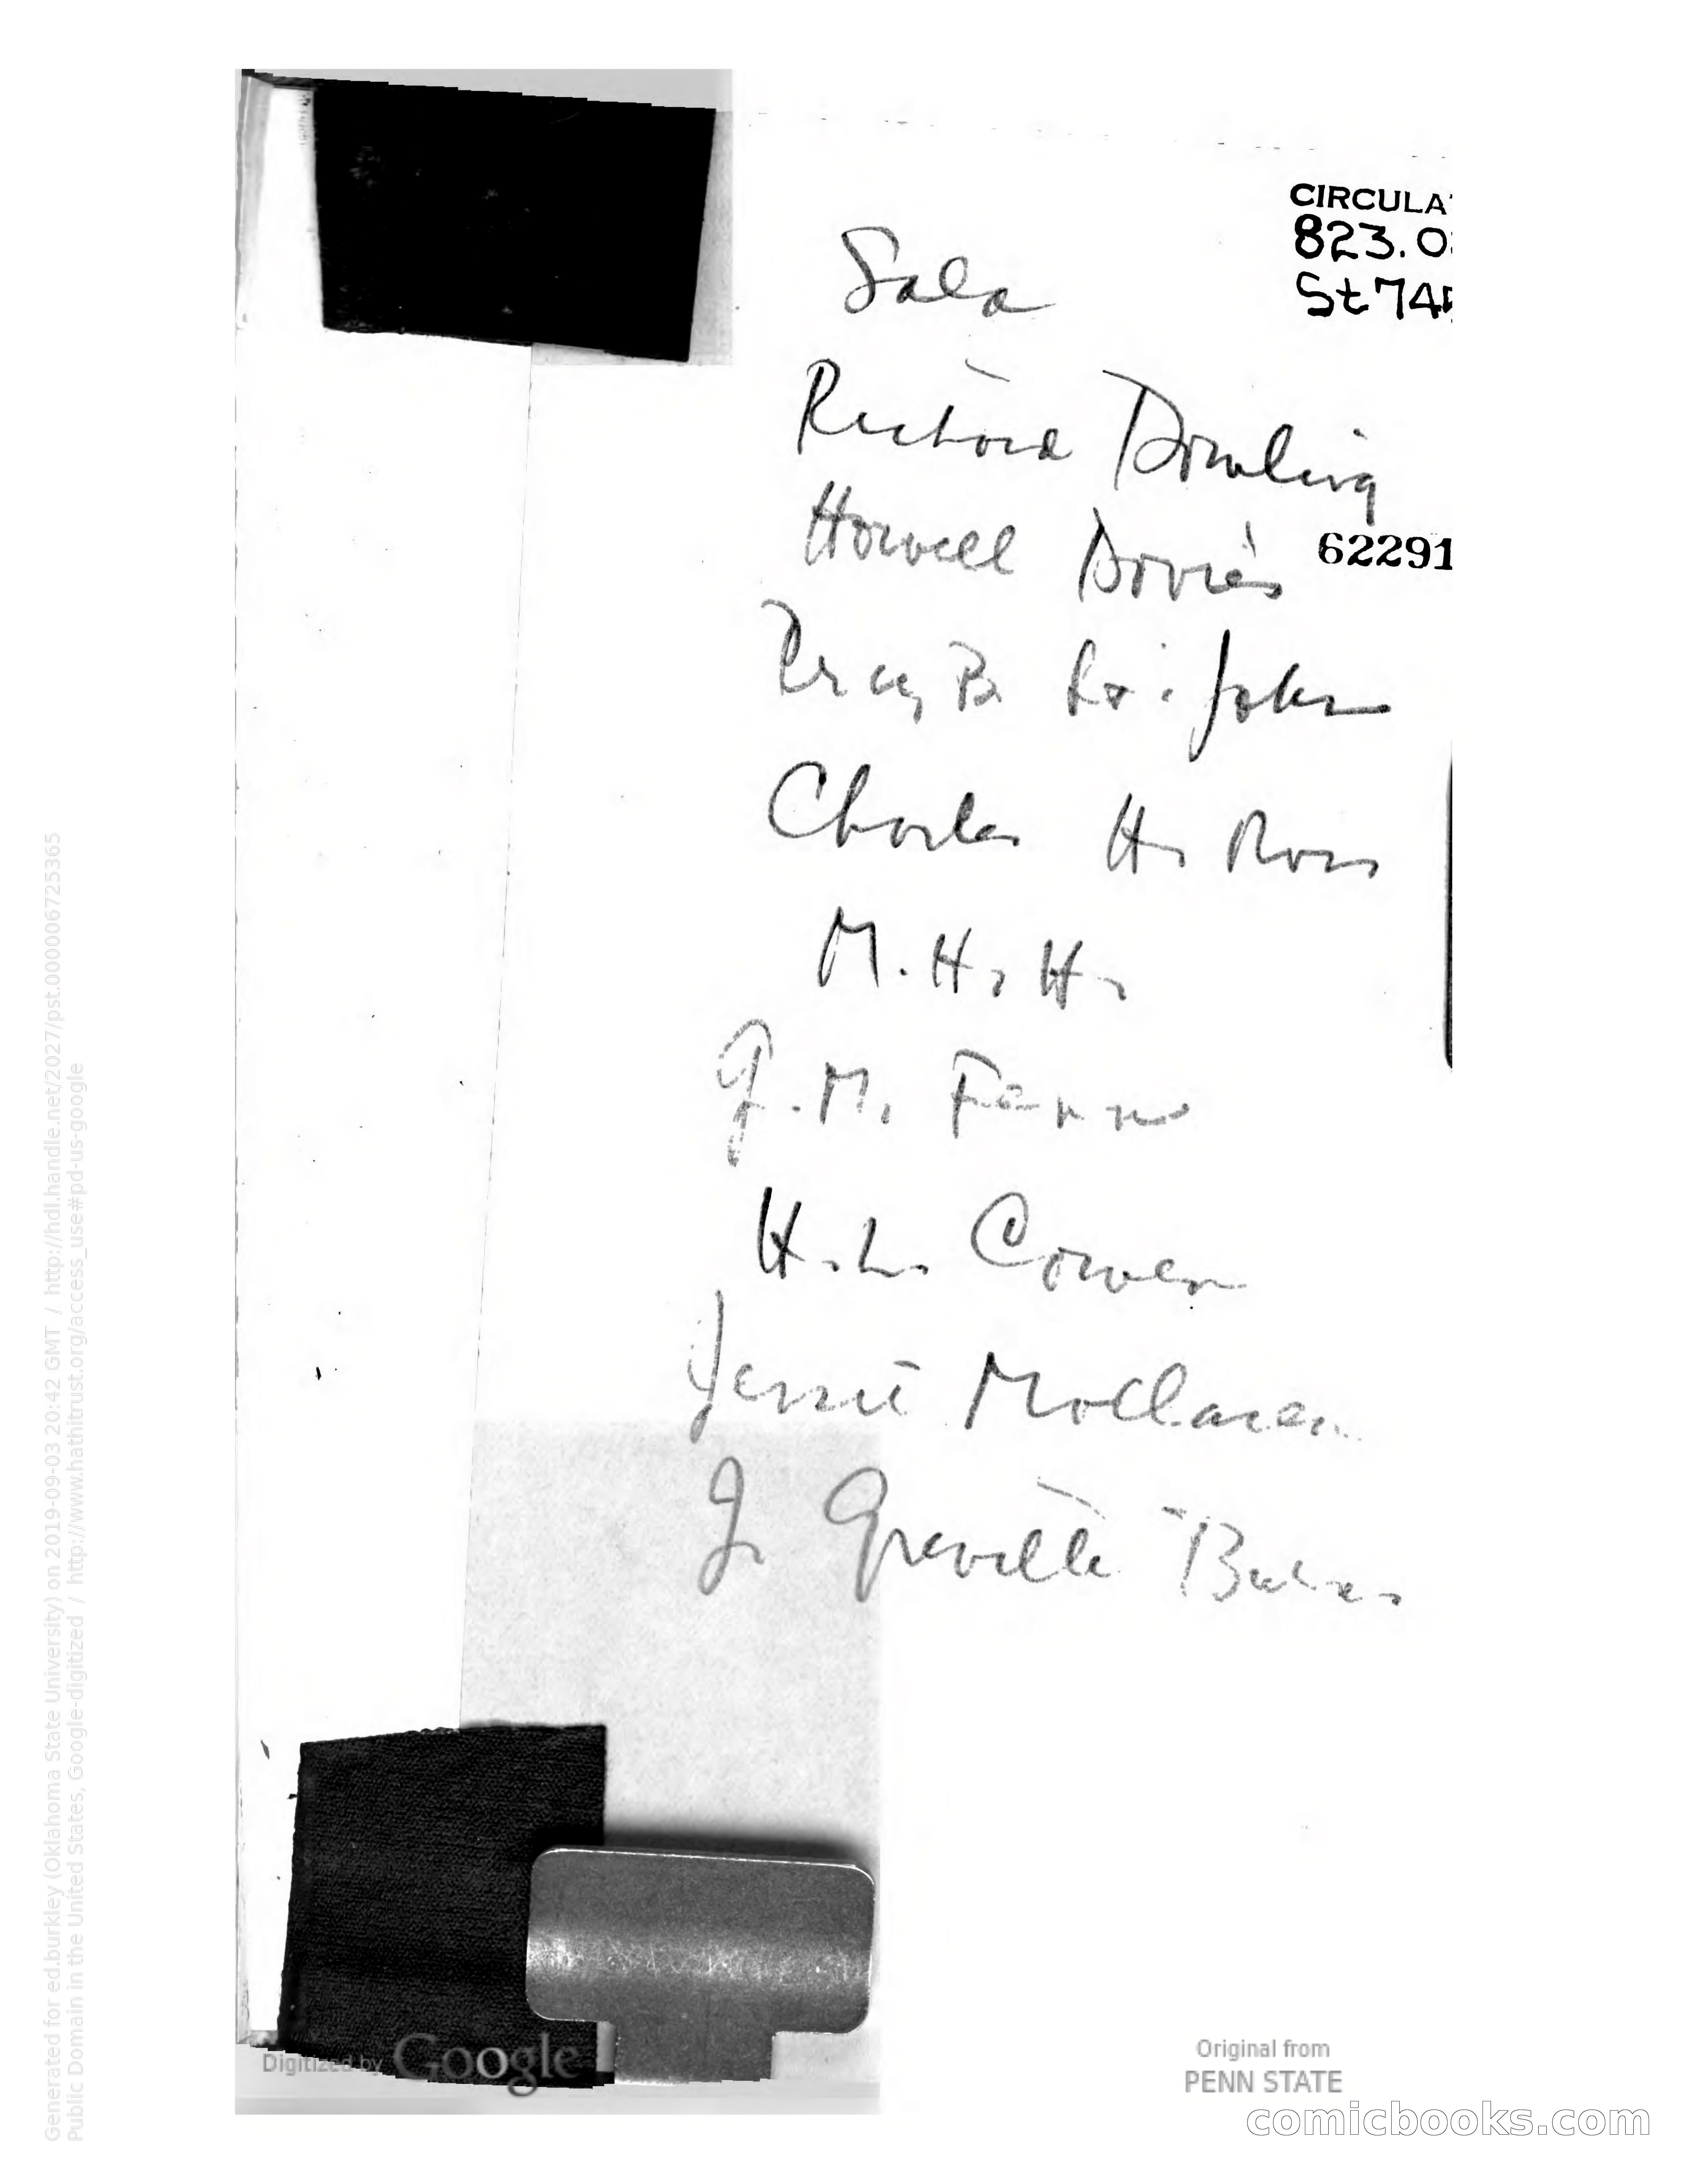 CIRCULA
823.0
St74
Sala
Richard Dowling
Howell Davies
Percy B. St. John
Charles H. Ross
M. H. H.
G. M. Fenn
H. L. Cowen
Jessie
J. Greville Burns
62291
Generated for ed.burkley (Oklahoma State University) on 2019-09-03 20:42 GMT / http://hdl.handle.net/2027/pst.000006725365
Public Domain in the United States, Google-digitized / http://www.hathitrust.org/access_use#pd-us-google
Digitized by Google
Original from
PENN STATE
comicbooks.com